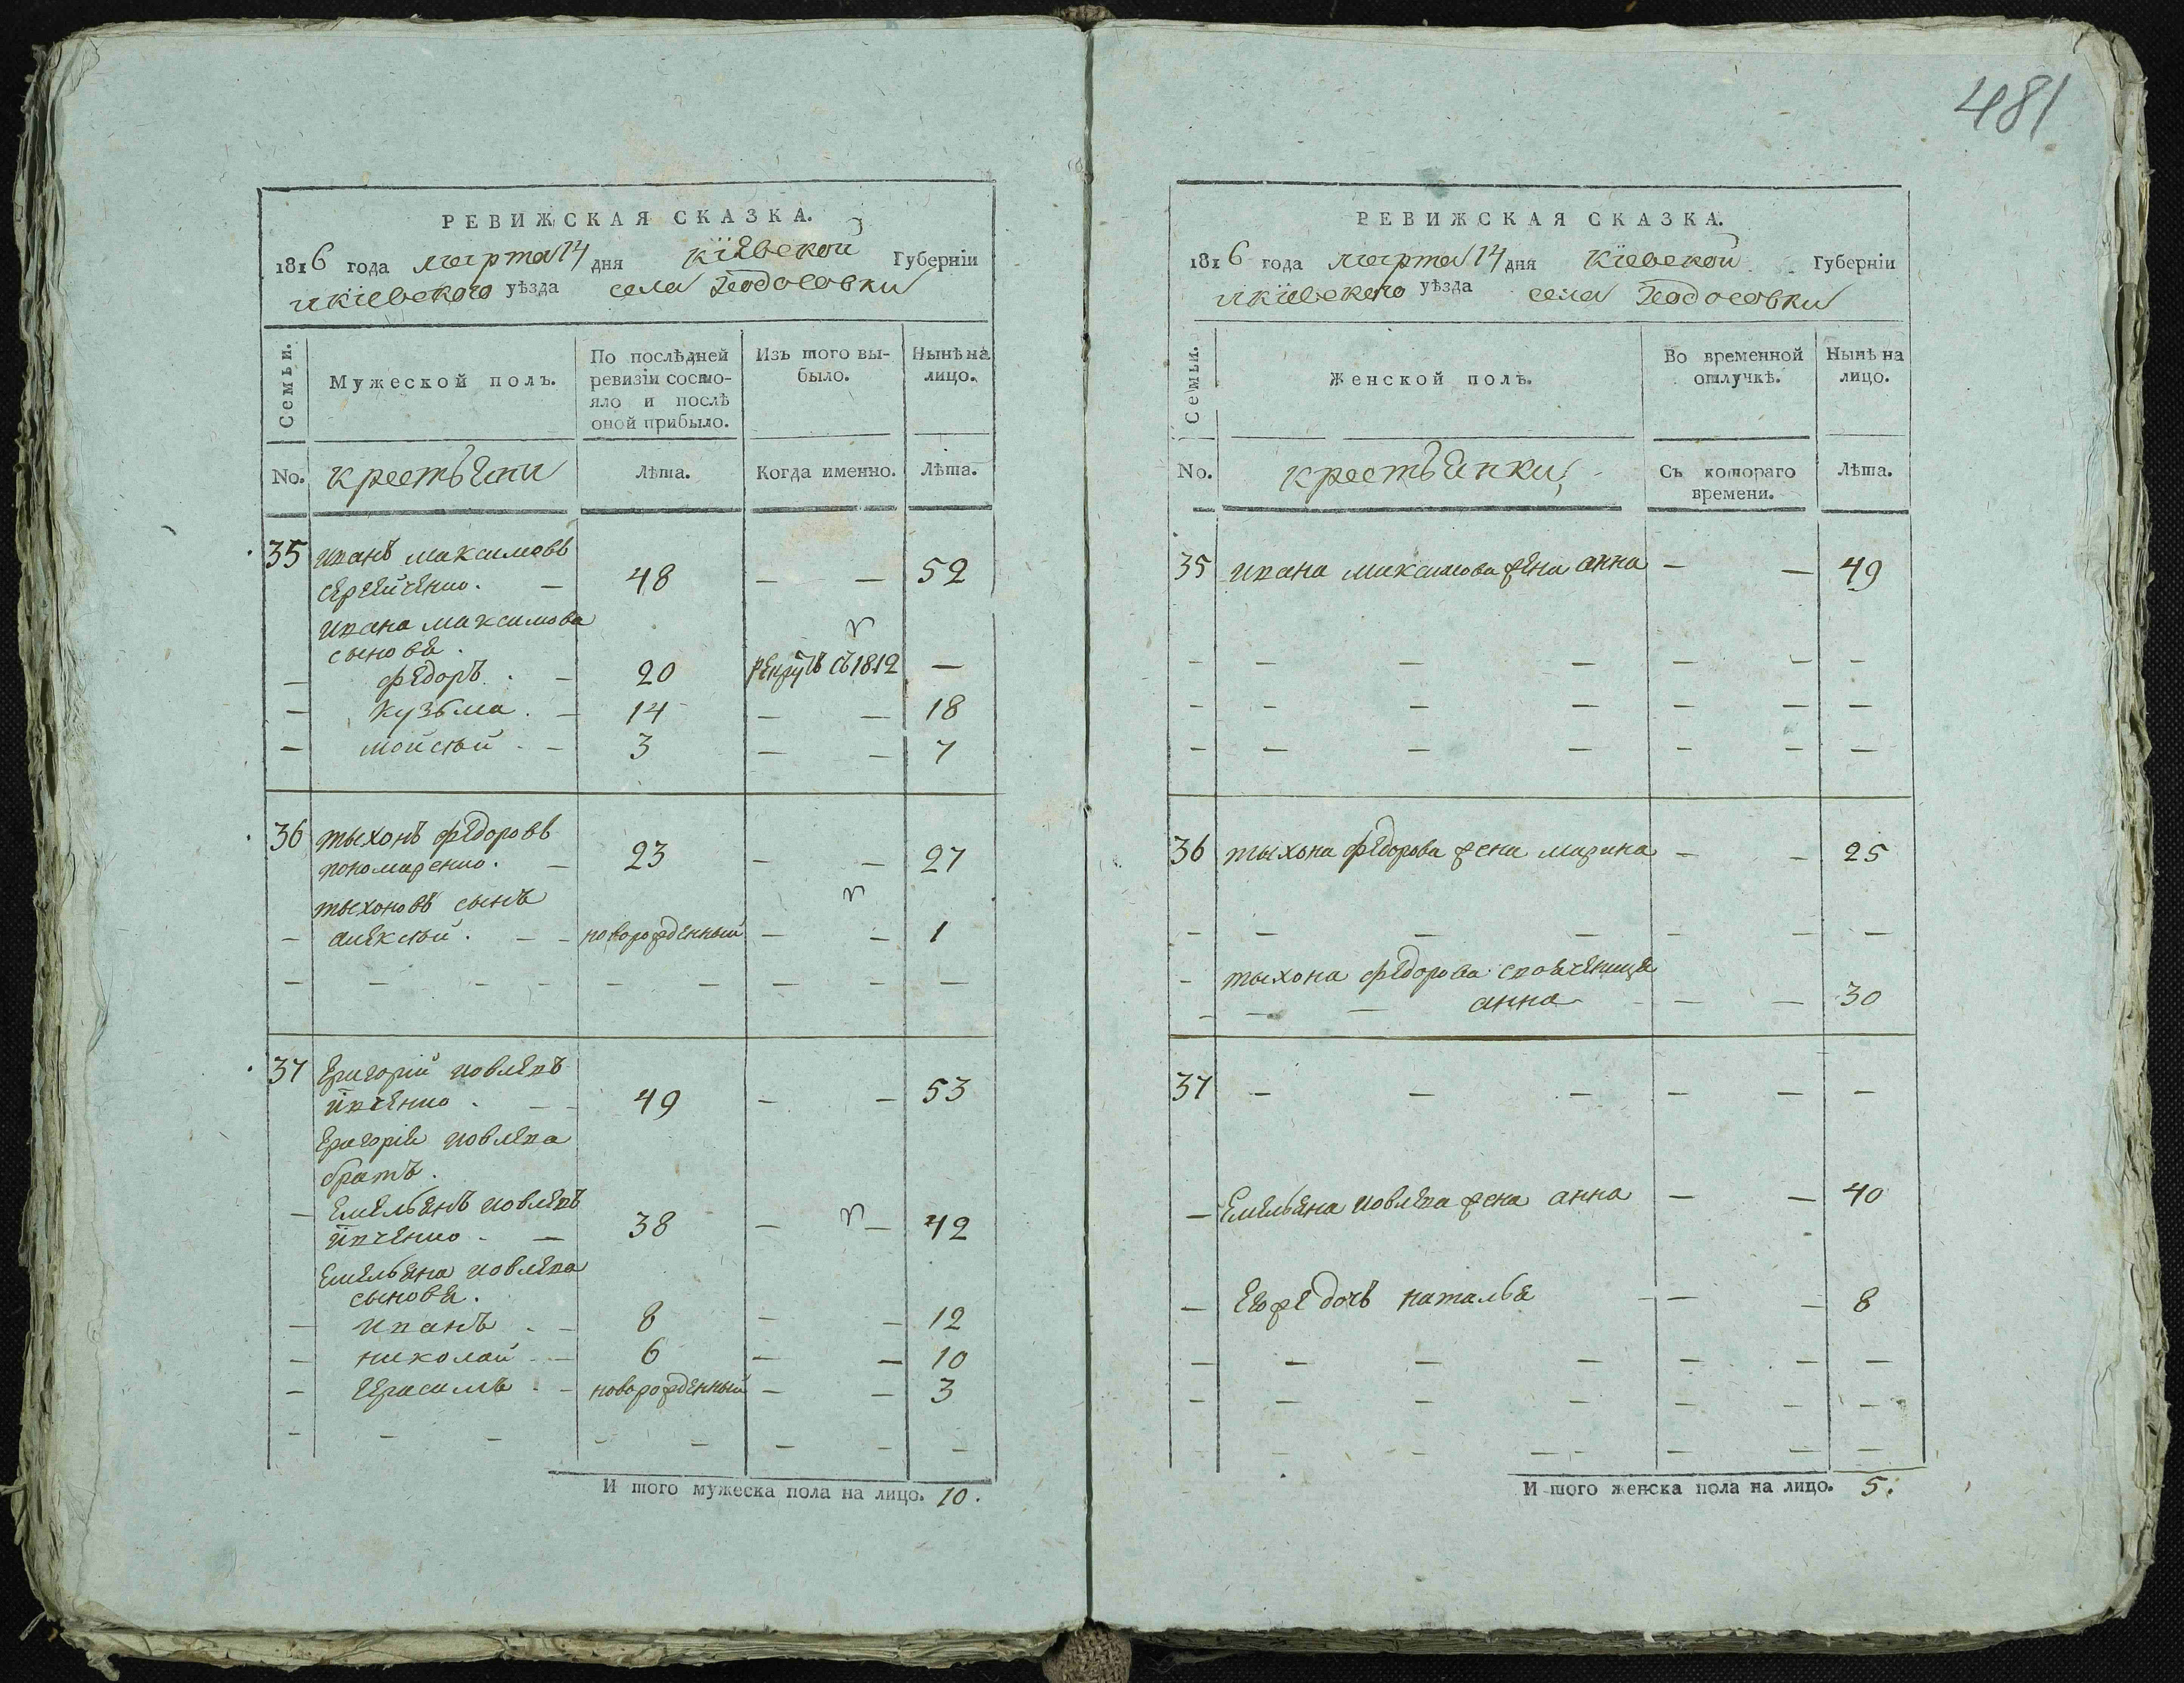 481
РЕВИЖСКАЯ СКАЗКА.
1816 года марта 14 дня Кіевской Губерніи
Икіевского уѣзда села Ходосовки
Семьи.
Мужеской полъ.
По послѣдней ревизіи состо-
яло и послѣ оной прибыло.
Изъ того вы-
было.
Нынѣ на
лицо.
No.
крестьяни
Лѣта.
Когда именно.
Лѣта.
35 иванъ максимовъ
48 — — 52
ивана максимова
сыновя.
— федоръ. — 20 рекрутъ съ 1812 —
— кузьма. — 14 — — 18
— мойсѣй. — 3 — — 7
36 тыхонъ федоровъ
пономаренко. — 23 — — 27
тыхоновъ сынъ
— алексѣй. — — новорожденный — — 1
37 григорій іовлевъ
ивченко. — — 49 — — 53
григорія іовлева
братъ.
— емельянъ іовлевъ
ивченко. — 38 — — 42
емельяна іовлева
сыновя.
— иванъ — — 8 — — 12
— николай — — 6 — — 10
— герасимъ — — новорожденный — — 3
И того мужеска пола на лицо. 10.
РЕВИЖСКАЯ СКАЗКА.
1816 года марта 14 дня Кіевской Губерніи
Икіевского уѣзда села Ходосовки
Семьи.
Женской полъ.
Во временной
отлучкѣ.
Нынѣ на
лицо.
No.
крестьянки
Съ котораго
времени.
Лѣта.
35 ивана максимова жена анна — — 49
36 тыхона федорова жена марина — — 25
— тыхона федорова своячениця
анна — — 30
37 — — — — — —
— емельяна іовлева жена анна — — 40
— егоже дочь наталья — — 8
И того женска пола на лицо. 5.